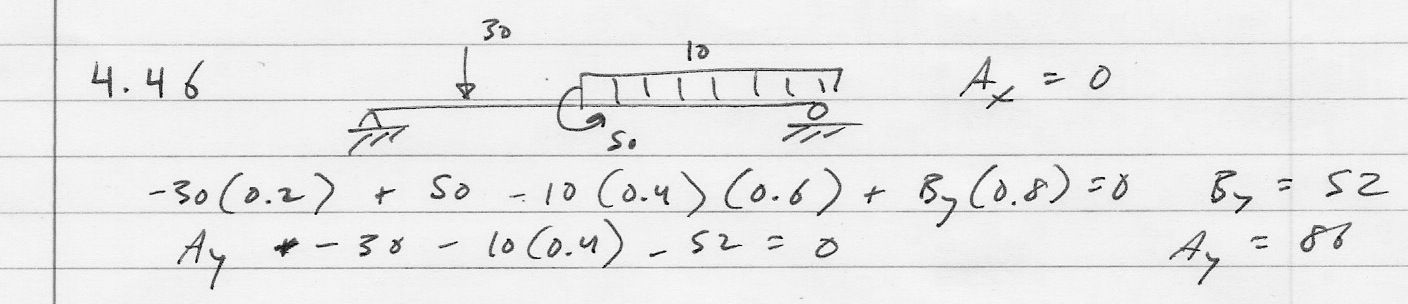 30
10
4.46 Ax = 0
50
-30(0.2) + 50 - 10(0.4)(0.6) + By(0.8) = 0 By = 52
Ay - 30 - 10(0.4) - 52 = 0 Ay = 86